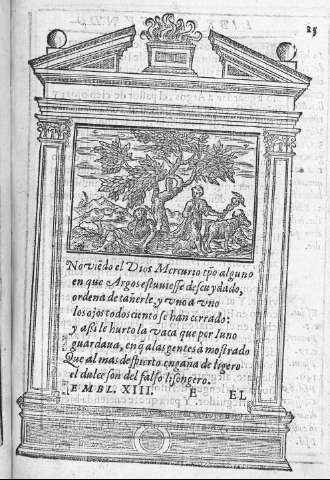 25
No viẽdo el Dios Mercurio tp̃o alguno
en que Argos estuuiesse descuydado,
ordena de tañerle, y vno a vno
los ojos todos ciento se han cerrado:
y assi le hurto la vaca que por Iuno
guardaua, en q̃ a las gentes a mostrado
Que al mas despierto engaña de ligero
el dulce son del falso lisongero.
EMBL. XIII. E EL